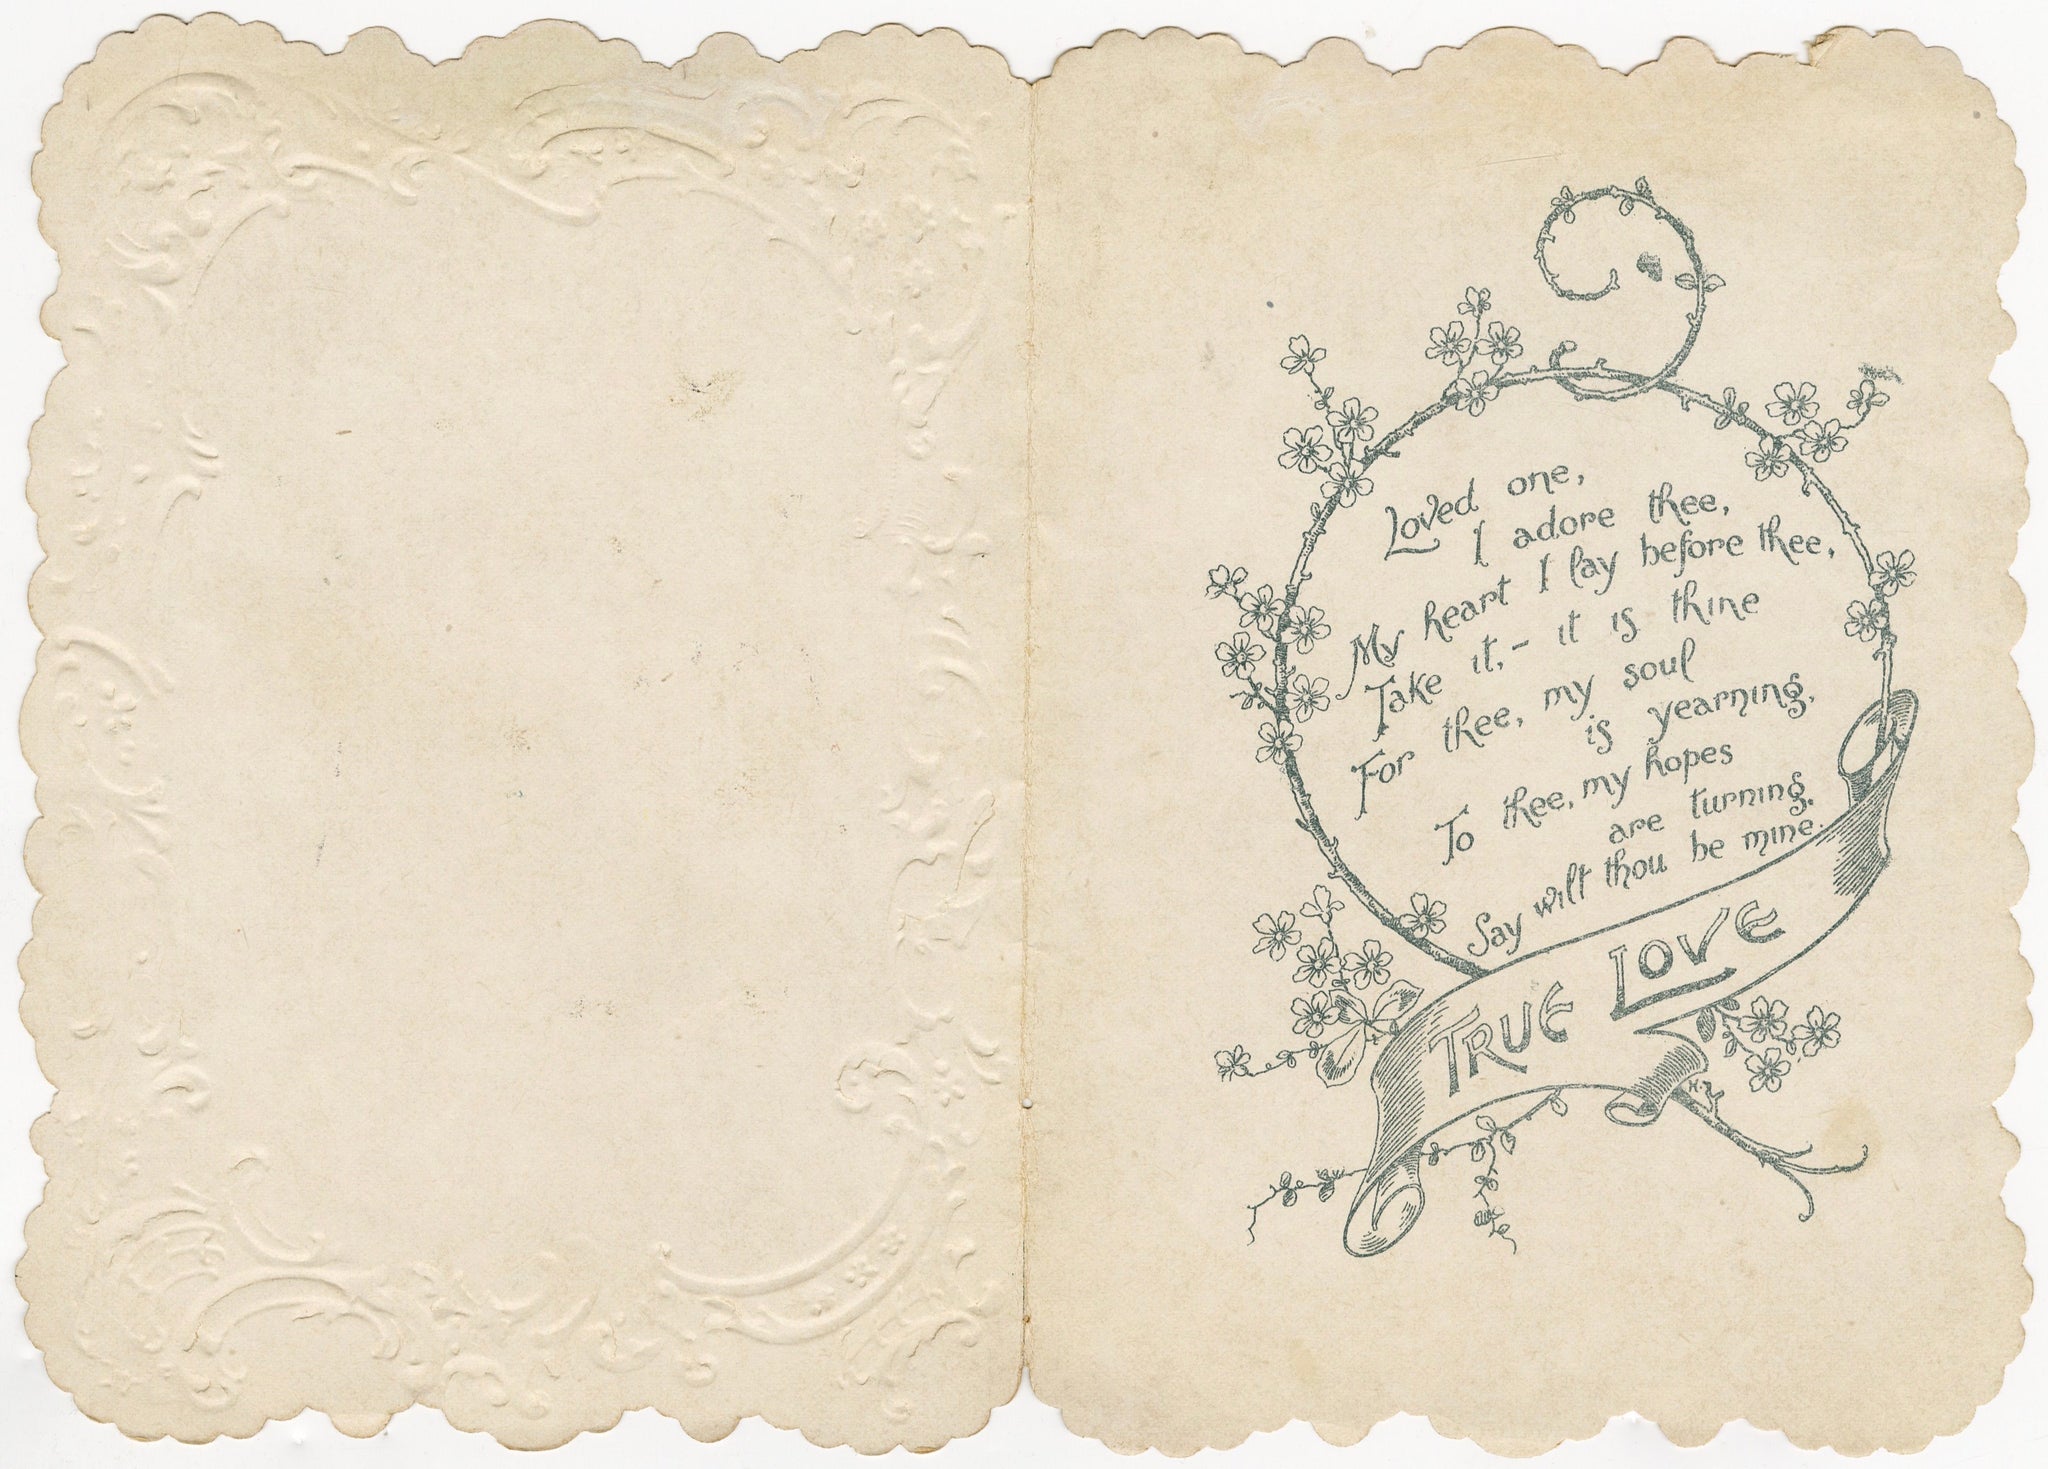 Loved one,
I adore thee,
My heart I lay before thee,
Take it, – it is thine
For thee, my soul
is yearning,
To thee, my hopes
are turning.
Say wilt thou be mine.
TRUE LOVE